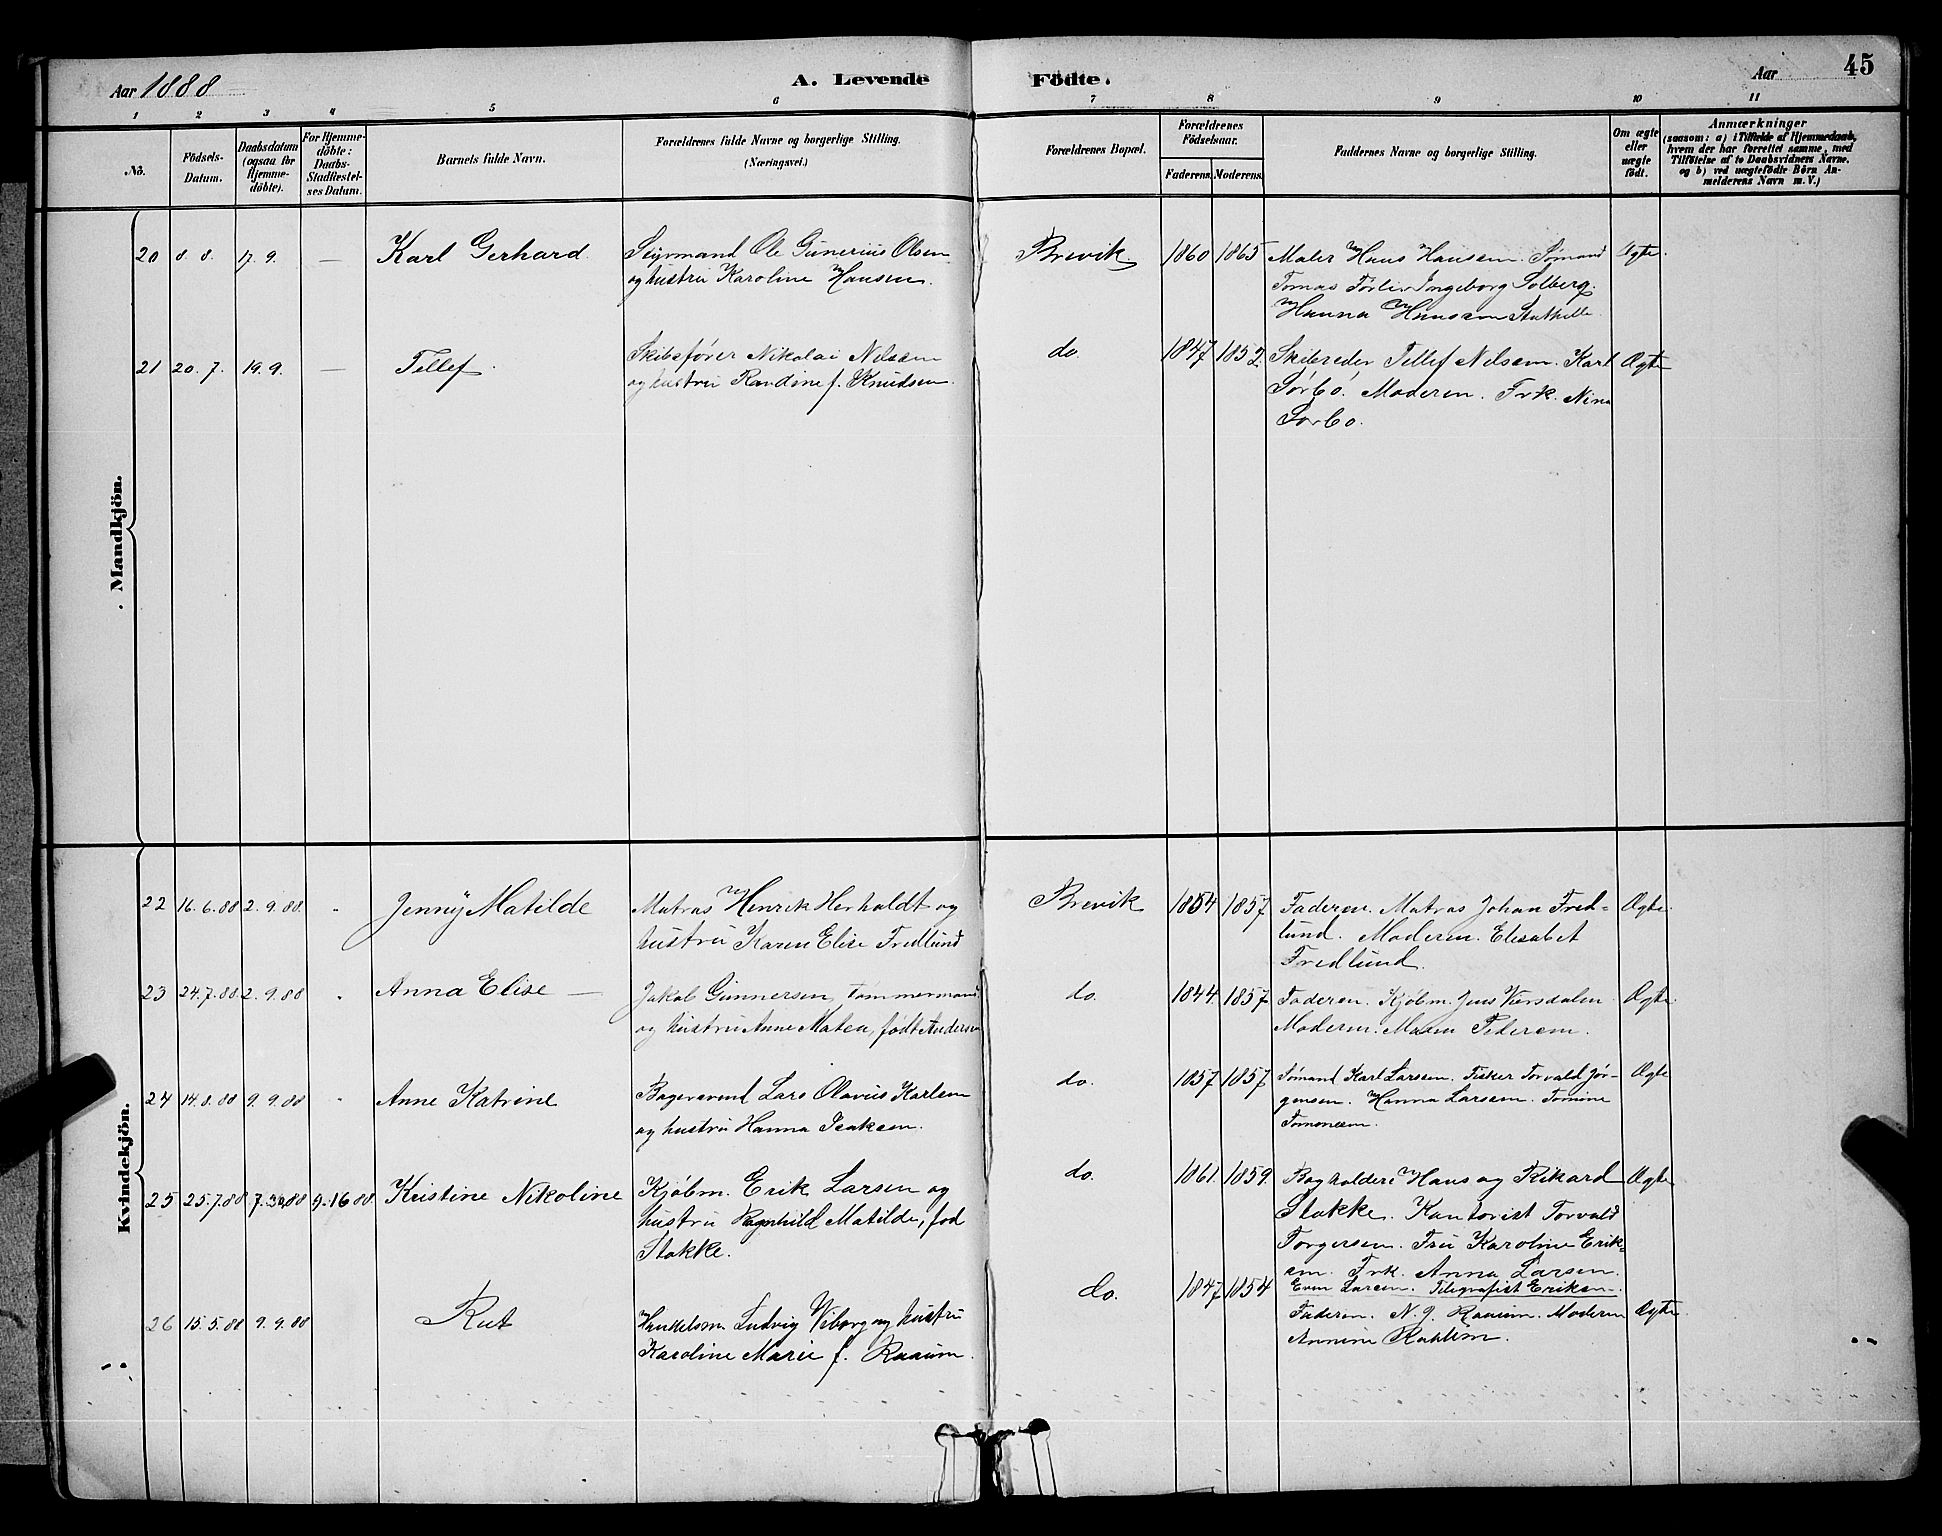 Aar 1888
A. Levende Födte.
Aar
45
1 2 3 4 5 6 7 8 9 10 11
No.
Födsels-
Datum.
Daabsdatum
(ogsaa for
Hjemme-
döbte).
For Hjemme-
döbte:
Daabs-
Stadfæstel-
ses Datum.
Barnets fulde Navn.
Forældrenes fulde Navne og borgerlige Stilling.
(Næringsvei.)
Forældrenes Bopæl.
Forældrenes
Födselsaar.
Faderens. Moderens.
Faddernes Navne og borgerlige Stilling.
Om ægte
eller
uægte
födt.
Anmærkninger
(saasom: a) i Tilfælde af Hjemmedaab,
hvem der har forrettet samme, med
Tilföielse af to Daabsvidners Navne.
og b) ved uægtefödte Börn An-
melderens Navn m.V.)
Mandkjön.
20 8.8. 17.9. — Karl Gerhard. Styrmand Ole Gunerius Olsen Brevik. 1860 1865 Maler Hans Hansen. Sømand Ægte.
og hustru Karoline Hansen. Tomas Ingeborg Solberg.
Hanna Hansen Stathelle.
21 20.7. 19.9. — Tellef. Skibsfører Nikolai Nilsen do. 1847 1852. Skibsreder Tellef Nilsen. Karl Ægte
og hustru Randine f. Knudsen. Sørbö. Moderen. Frk. Nina
Sørbö.
Kvindekjön.
22 16.6.88 2.9.88. " Jenny Matilde Matros Henrik Herholdt og Brevik 1854 1857 Faderen. Matros Johan Fred- Ægte.
hustru Karen Elise Fredlund lund. Moderen. Elisabet
Fredlund.
23 24.7.88. 2.9.88 " Anna Elise — Jakob Gunnersen, Tømmermand do. 1844. 1857 Faderen. Kjøbm. Jens Versdalen. Ægte.
og hustru Anne Matea, født Andersen Moderen. Maren Pedersen.
24 14.8.88 9.9.88 " Anne Katrine Bagersvend Lars Olavus Karlsen do. 1857 1857 Sømand Karl Larssen. Fisker Torvald Jör- Ægte
og hustru Hanna Isaksen. gensen. Hanna Larsen. Tomine
25 25.7.88 88 9.16 88 Kristine Nikoline Kjøbm. Erik Larsen og do. 1861. 1859. Bogholdere Hans og Rikard Ægte
hustru Ragnhild Matilde, fød Stokke. Kontorist Torvald
Stokke. Torgersen. Fru Karoline Erik-
sen. Frk. Anna Larsen.
Even Larsen. Telegrafist Eriksen.
26 15.5.88 9.9.88 Rut Handelsm. Ludvig Viborg og hustru do. 1847 1854 Faderen. N. J. Raaum. Moderen Ægte.
Karoline Marie f. Raaum.